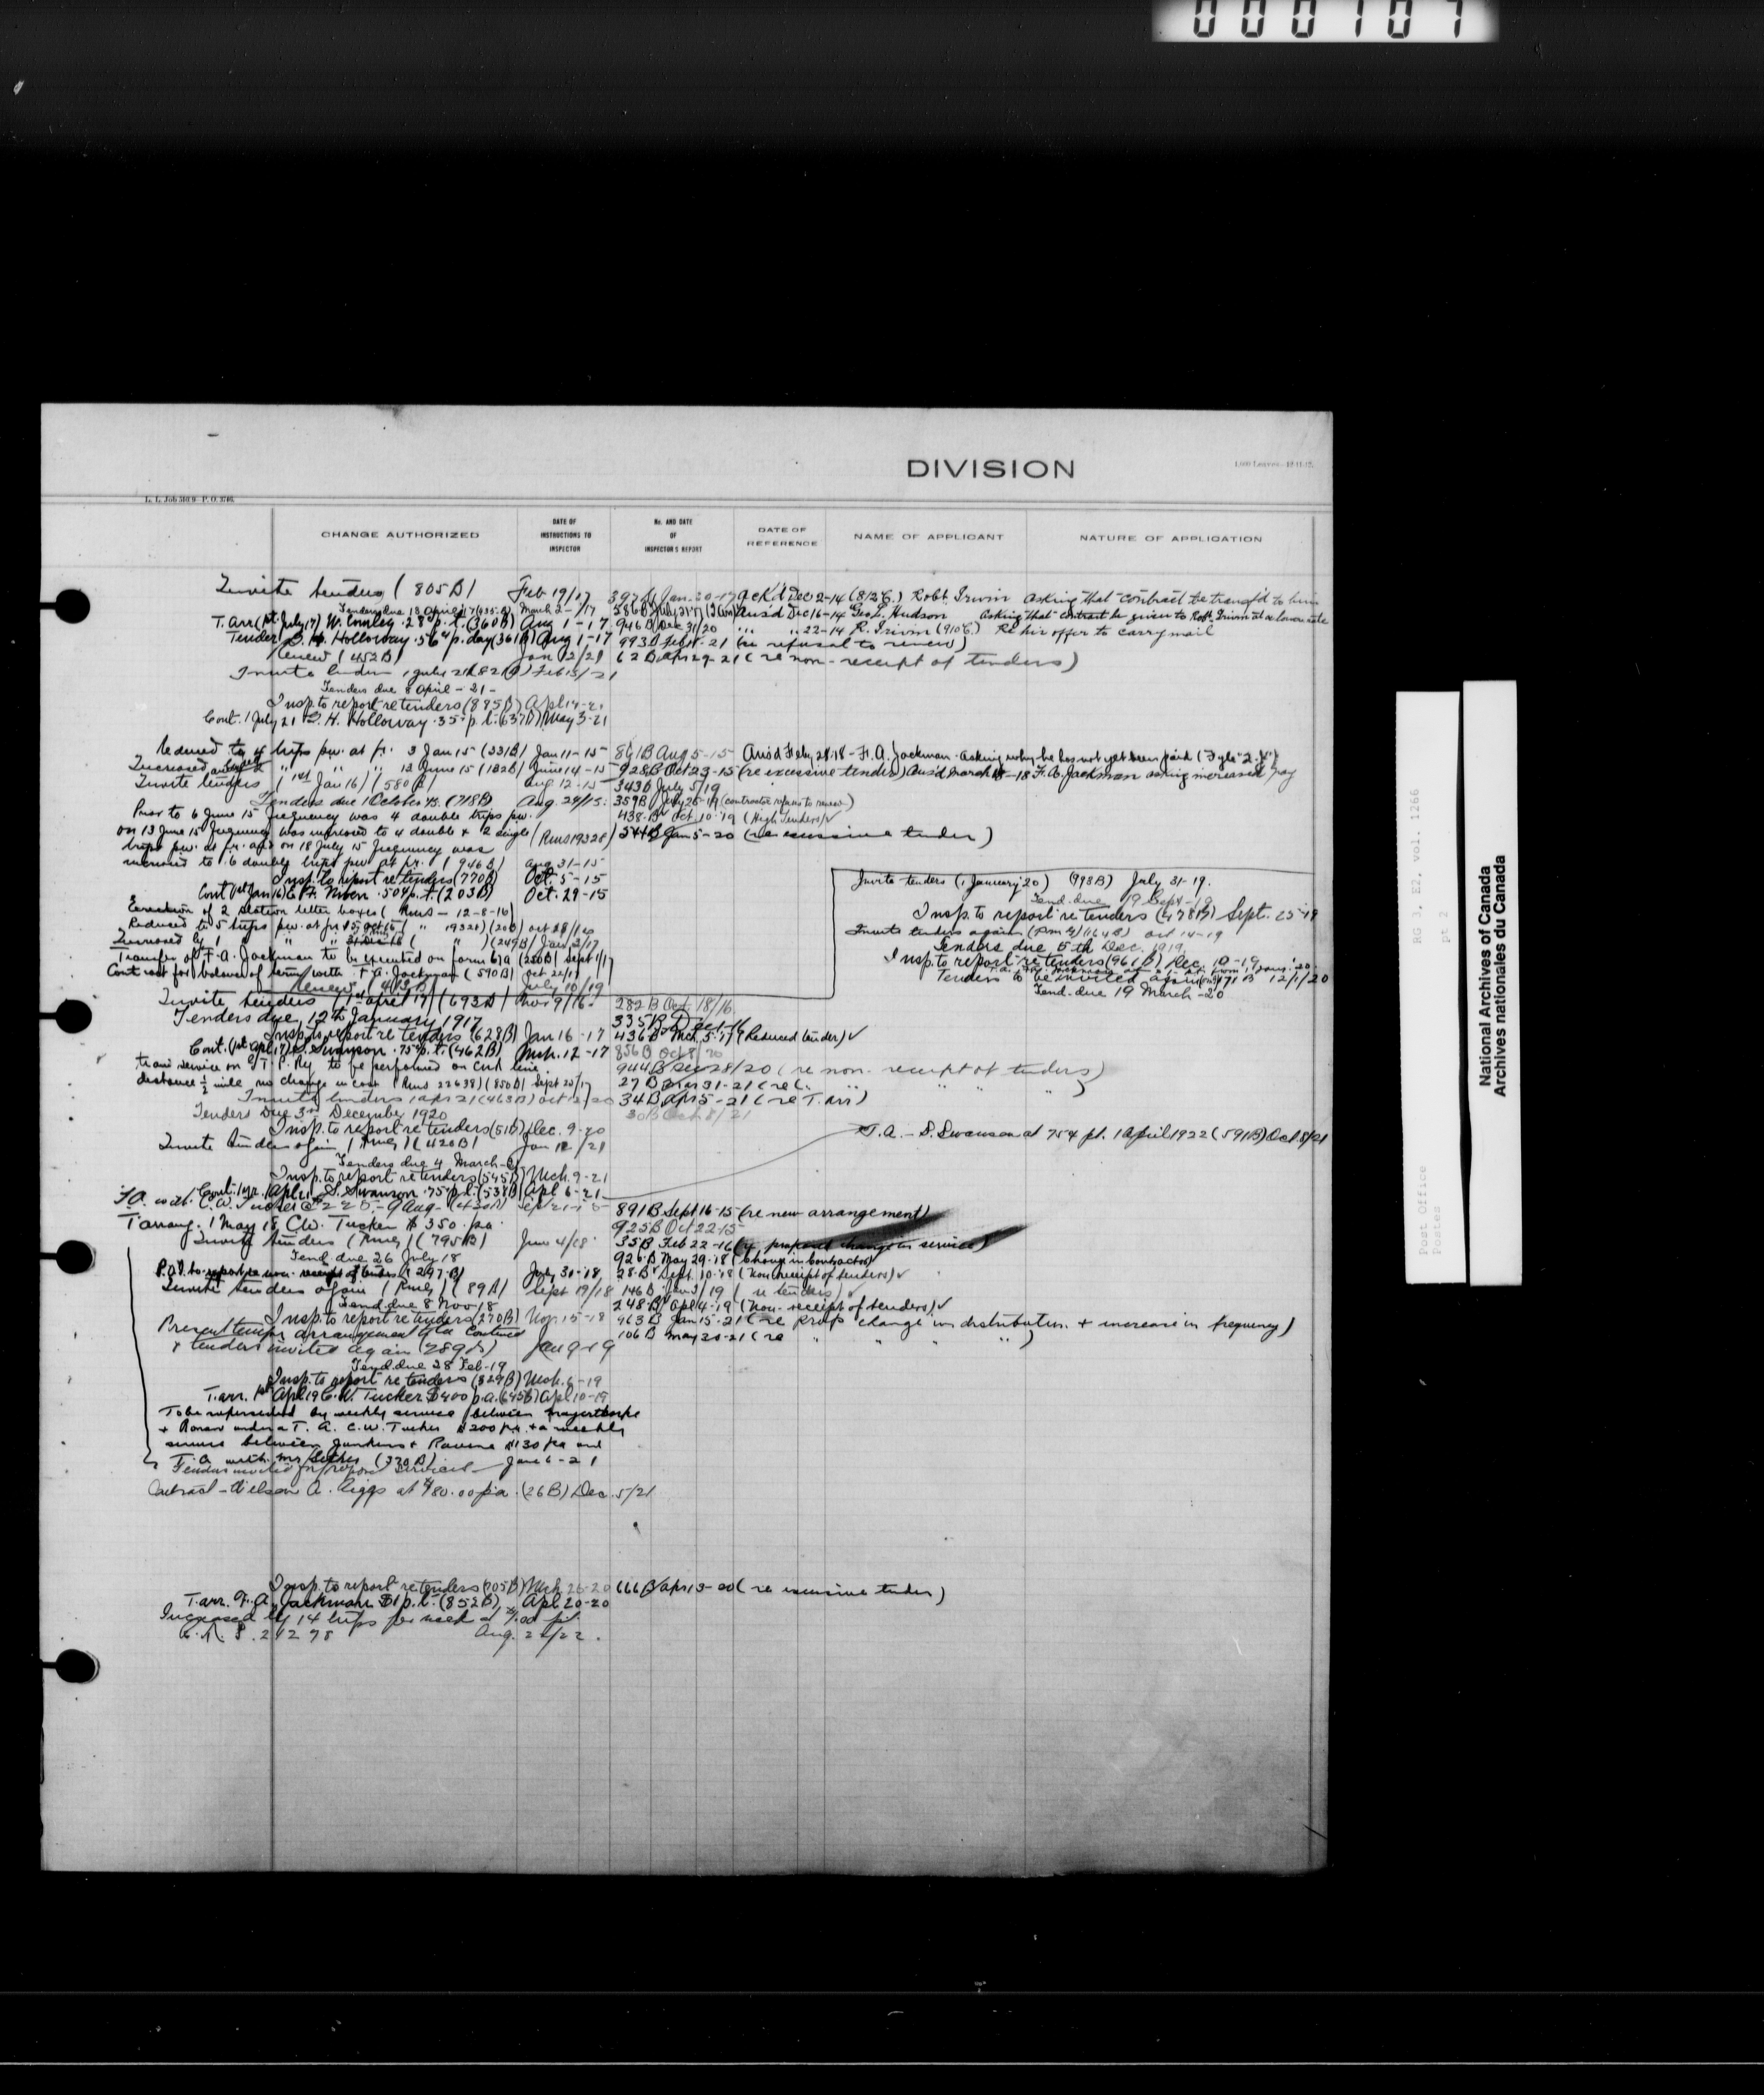 000107
DIVISION
1,000 Leaves.-12-11-12.
L. L. Job 5019 P. O. 3706.
CHANGE AUTHORIZED
DATE OF INSTRUCTIONS TO INSPECTOR
No. AND DATE OF INSPECTOR'S REPORT
DATE OF REFERENCE
NAME OF APPLICANT
NATURE OF APPLICATION
Invite tenders (805B) Feb 19/17 Jan. 30-17 Ack'd Dec 2-14 (812C.) Robt. Irwin Asking that contract be transf'd to him
Tenders due 13 April 17 March 2-/17 586B July 21-17 Ans'd Dec 16-14 Geo. L. Hudson Asking that contract be given to Robt. Irwin at a lower rate
T. arr (1st July 17) W. Comley .28 p.t. (360B) Aug 1-17 946B Dec 31/20 " " 22-14 R. Irwin (910C.) Re his offer to carry mail
Tender G. H. Holloway .56 p. day (361B) Aug 1-17 993B Feb 11-21 (re refusal to renew)
Renew (452B) Jan 12/21 62B Apr 29-21 (re non-receipt of tenders)
Invite tenders 1 July 21 Feb 15/21
Tenders due 8 April - 21-
Insp. to report re tenders (885B) Apl 14-21
Cont. 1 July 21 G. H. Holloway .35 p.t. (637B) May 3-21
Reduced to 4 trips pw. at fr. 3 Jan 15 (331B) Jan 11-15 861B Aug 5-15 Ans'd Feby 28-18 - F. A. Jackman - Asking why he has not yet been paid (Fyle "2.X")
Increased " " " 13 June 15 (132B) June 14-15 928B Oct 23-15 (re excessive tender) Ans'd March -18 F. A. Jackman asking increased pay
Invite tenders (1st Jan 16) (580B) Aug 12-15 343B July 5/19
Tenders due 1 October 15. (718B) Aug. 24/15. 359B July 25-19 (contractor refuses to renew)
Prior to 6 June 15 frequency was 4 double trips pw. 438.B Oct 10-19 (High tenders)
on 13 June 15 frequency was increased to 4 double & 2 single (Rms 19328) 544B Jan 5-20 (re excessive tender)
trips pw. at fr. and on 18 July 15 frequency was
increased to 6 double trips pw at fr. (946B) Aug 31-15
Insp. to report re tenders (770B) Oct. 5-15
Cont 1st Jan 16 F. Moon .50 p.t. (203B) Oct. 29-15
Erection of 2 station letter boxes (Rms - 12-8-16)
Reduced to 5 trips pw. at fr. 15 Oct 16 (" 19320) (20B) Oct 28/16
Increased by 1 " " (" ) (249B) Jan 2/17
Transfer of F. A. Jackman to be executed on form 61a (220B) Sept 1/17
Contract for balance of term with F. A. Jackman (590B) Oct 22/17
Renew (413B) July 10/19
Invite tenders (1 January '20) (998B) July 31-19.
Tend. due 19 Sept-19
Insp. to report re tenders (478B) Sept. 25-19
Invite tenders again (Rmly) (164B) Oct 14-19
Tenders due 5th Dec. 1919
Insp. to report re tenders (961B) Dec. 10-19
Tenders to be invited again 12/1/20
Tend. due 19 March -20
Invite tenders (1st April 17) (693B) Nov 9/16. 282B Oct. 18/16.
Tenders due 12th January 1917 335B Dec 1-16
Insp. to report re tenders (628B) Jan 16-17 436B Mch 5-17 (Reduced tender)
Cont. (1st Apl 17) S. Swanson .75 p.t. (462B) Mch. 12-17 856B Oct 8/20
trans service on G. T. P. Ry to be performed on C.N.R. line. 944B Dec 28/20 (re non-receipt of tenders)
distance ½ mile, no change in cost (Rms 22638) (850B) Sept 25/17 27B Mar 31-21 (re " " " )
Invite tenders 1 Apr 21 (463B) Oct 12/20 34B Apr 5-21 (re T. arr)
Tenders Due 3rd December 1920 30B Oct 8/21
Insp. to report re tenders (51B) Dec. 9-20 T. A. - S. Swanson at 75¢ pt. 1 April 1922 (591B) Oct 8/21
Invite tenders again (Rmly) (420B) Jan 12/21
Tenders due 4 March-21
Insp. to report re tenders (545B) Mch. 9-21
Cont. 1 yr. 1 Apl 21 S. Swanson .75 p.t. (538B) Apl 6-21
T.A. with C. W. Tucker @ $225.- 9 Aug- 891B Sept 16-15 (re new arrangement)
T. arrang. 1 May 18 C. W. Tucker $350. pa. 925B Oct 22-15
Invite tenders (Rmly) (795B) June 4/18 35B Feb 22-16 (re proposed change in service)
Tend. due 26 July 18 926B May 29-18 (change in contractor)
P.O.I. to report re non-receipt of tenders (247B) July 31-18 28B Sept. 10-18 (Non receipt of tenders)
Invite tenders again (Rmly) (89B) Sept 19/18 146B Jan 3/19 (re tenders)
Tend. due 8 Nov 18 248B Apl 4-19 (Non-receipt of tenders)
Insp. to report re tenders (270B) Nov. 15-18 463B Jan 15-21 (re prop change in distribution + increase in frequency)
Present temp. arrangement to be continued 106B May 20-21 (re " " " )
+ tenders invited again (289B) Jan 9-19
Tend. due 28 Feb-19
Insp. to report re tenders (829B) Mch. 6-19
T. arr. 1st Apl 19 C. W. Tucker $400 p.a. (645B) Apl 10-19
To be superseded by weekly service between Mayerthorpe
+ Ronan under a T. A. C. W. Tucker $200 pa. + a weekly
service between Junkins + Ravine $130 pa and
T. A. with Mr (330B) June 6-21
Tenders invited for proposed services
Contract - Nelson A. Riggs at $480.00 pa. (26B) Dec. 5/21
Insp. to report re tenders (705B) Mch 26-20 666B Apr 13-20 (re excessive tender)
T. arr. F. A. Jackman $1 p.t. (852B) Apl 20-20
Increased by 14 trips per week at $1.00 pt.
24278 Aug. 22/22.
RG 3, E2, vol. 1266
pt 2
Post Office
Postes
National Archives of Canada
Archives nationales du Canada